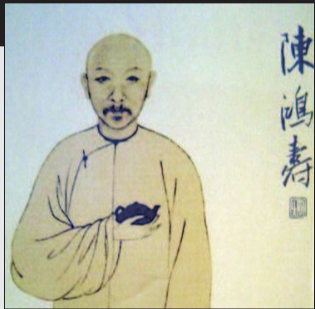 陳鴻壽